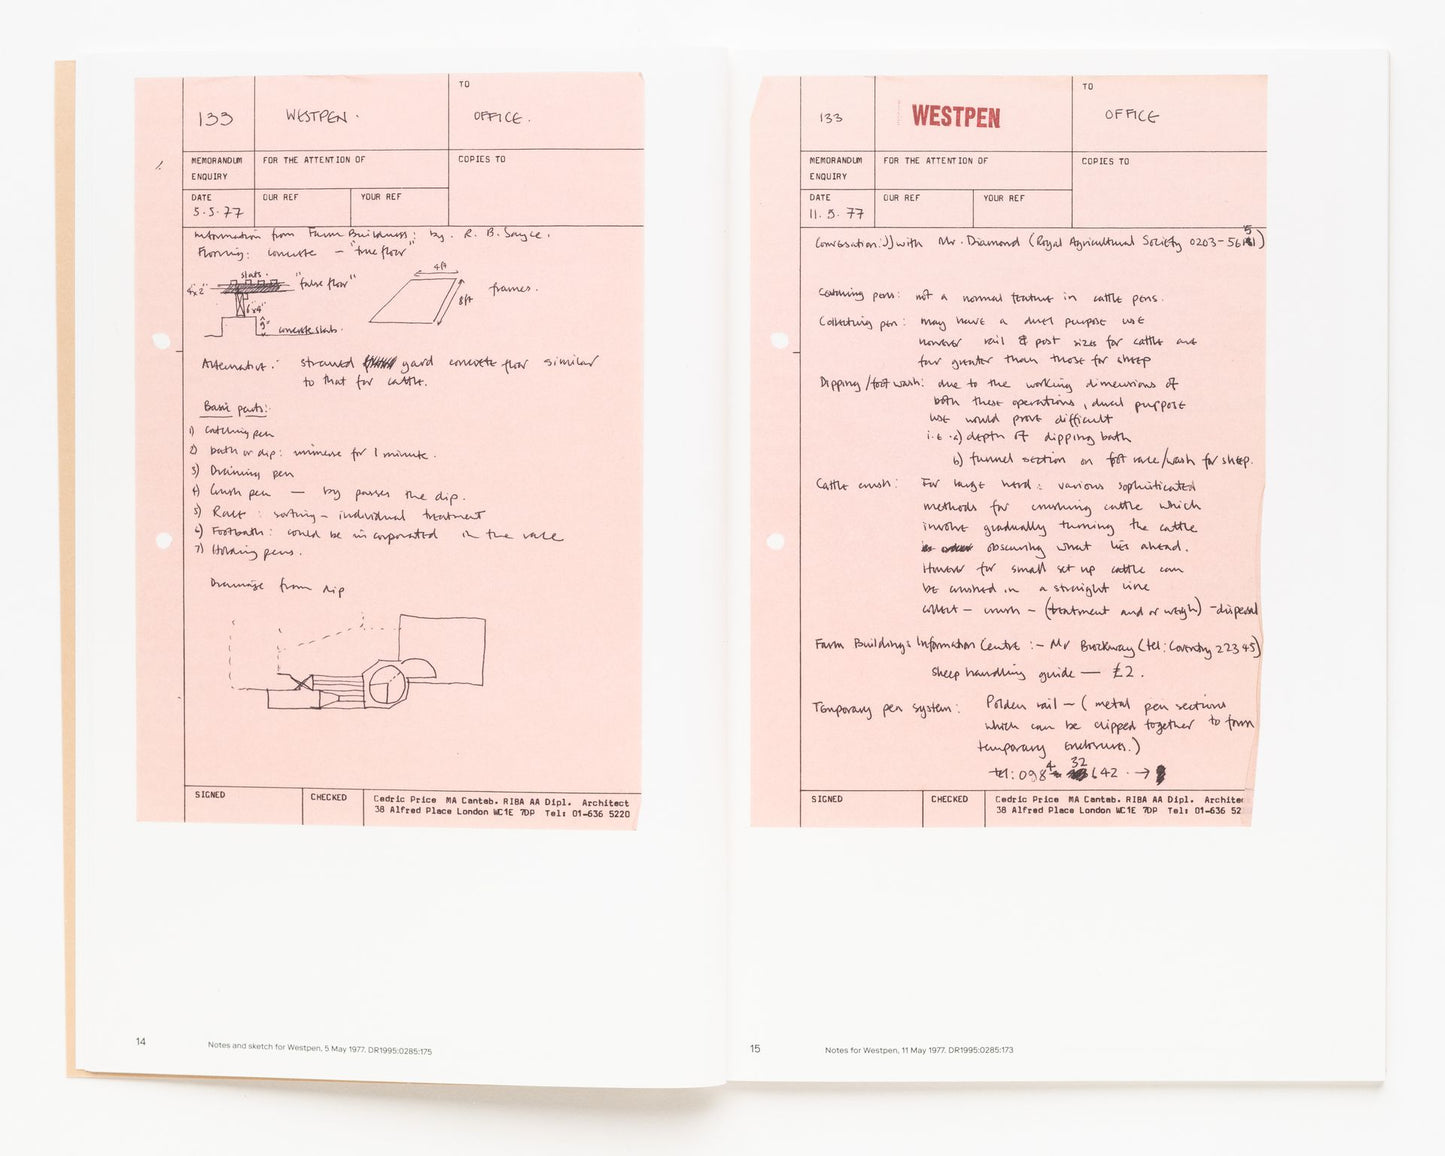 133
WESTPEN.
TO
OFFICE.
MEMORANDUM
ENQUIRY
FOR THE ATTENTION OF
COPIES TO
DATE
5.5.77
OUR REF
YOUR REF
Information from Farm Buildings: by. R. B. Sayce.
Flooring: concrete — "true floor"
slats.
4x2"
"false floor"
6"x4"
9"
concrete slab.
4ft
8ft
frames.
Alternative: strawed yard concrete floor similar
to that for cattle.
Basic parts:
1) Catching pen
2) bath or dip: immerse for 1 minute.
3) Draining pen
4) Crush pen — by passes the dip.
5) Race: sorting – individual treatment
6) Footbath: could be incorporated in the race
7) Holding pens.
Drainage from dip
SIGNED
CHECKED
Cedric Price MA Cantab. RIBA AA Dipl. Architect
38 Alfred Place London WC1E 7DP Tel: 01-636 5220
14
Notes and sketch for Westpen, 5 May 1977. DR1995:0285:175
133
WESTPEN
TO
OFFICE
MEMORANDUM
ENQUIRY
FOR THE ATTENTION OF
COPIES TO
DATE
11.5.77
OUR REF
YOUR REF
Conversation: JJ with Mr. Diamond (Royal Agricultural Society 0203-56151)
Catching pens: not a normal feature in cattle pens.
Collecting pen: may have a dual purpose use
however rail & post sizes for cattle are
far greater than those for sheep
Dipping/foot wash: due to the working dimensions of
both these operations, dual purpose
use would prove difficult
i.e. a) depth of dipping bath
b) funnel section on foot race/wash for sheep.
Cattle crush: For large herd: various sophisticated
methods for crushing cattle which
involve gradually turning the cattle
obscuring what lies ahead.
However for small set up cattle can
be crushed in a straight line
collect – crush – (treatment and or weigh) – dispersal
Farm Buildings Information Centre:– Mr Brockway (tel: Coventry 22345)
sheep handling guide — £2.
Temporary pen system: Polden rail – (metal pen sections
which can be clipped together to form
temporary enclosures.)
tel: 0984 32642 . →
SIGNED
CHECKED
Cedric Price MA Cantab. RIBA AA Dipl. Archite
38 Alfred Place London WC1E 7DP Tel: 01-636 52
15
Notes for Westpen, 11 May 1977. DR1995:0285:173